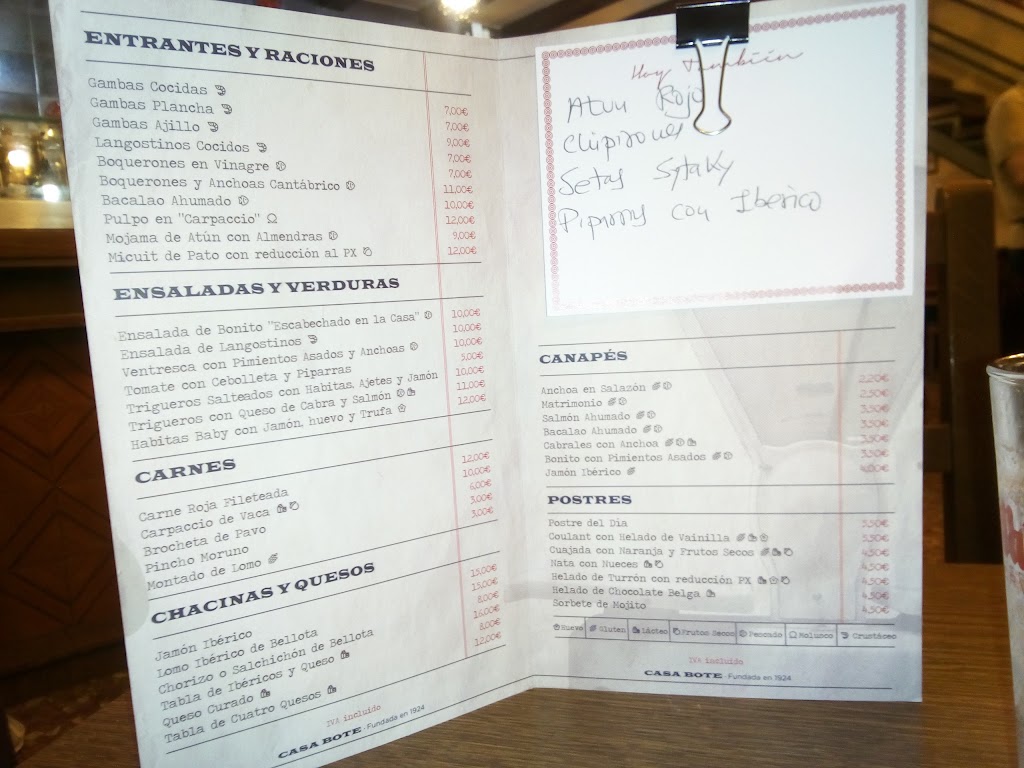 ENTRANTES Y RACIONES
Gambas Cocidas 7,00€
Gambas Plancha 7,00€
Gambas Ajillo 9,00€
Langostinos Cocidos 7,00€
Boquerones en Vinagre 7,00€
Boquerones y Anchoas Cantábrico 11,00€
Bacalao Ahumado 10,00€
Pulpo en "Carpaccio" 12,00€
Mojama de Atún con Almendras 9,00€
Micuit de Pato con reducción al PX 12,00€
ENSALADAS Y VERDURAS
Ensalada de Bonito "Escabechado en la Casa" 10,00€
Ensalada de Langostinos 10,00€
Ventresca con Pimientos Asados y Anchoas 10,00€
Tomate con Cebolleta y Piparras 5,00€
Trigueros Salteados con Habitas, Ajetes y Jamón 10,00€
Trigueros con Queso de Cabra y Salmón 11,00€
Habitas Baby con Jamón, huevo y Trufa 12,00€
CARNES
Carne Roja Fileteada 12,00€
Carpaccio de Vaca 10,00€
Brocheta de Pavo 6,00€
Pincho Moruno 3,00€
Montado de Lomo 3,00€
CHACINAS Y QUESOS
Jamón Ibérico 15,00€
Lomo Ibérico de Bellota 15,00€
Chorizo o Salchichón de Bellota 8,00€
Tabla de Ibéricos y Queso 16,00€
Queso Curado 8,00€
Tabla de Cuatro Quesos 12,00€
IVA incluido
CASA BOTE · Fundada en 1924
Hoy También
Atun Rojo
Chipirones
Setas Sytaky
con Iberico
CANAPÉS
Anchoa en Salazón 2,20€
Matrimonio 2,50€
Salmón Ahumado 3,50€
Bacalao Ahumado 3,50€
Cabrales con Anchoa 3,50€
Bonito con Pimientos Asados 3,50€
Jamón Ibérico 4,00€
POSTRES
Postre del Día 3,50€
Coulant con Helado de Vainilla 5,50€
Cuajada con Naranja y Frutos Secos 4,50€
Nata con Nueces 4,50€
Helado de Turrón con reducción PX 4,50€
Helado de Chocolate Belga 4,50€
Sorbete de Mojito 4,50€
Huevo Gluten Lácteo Frutos Secos Pescado Molusco Crustáceo
IVA incluido
CASA BOTE · Fundada en 1924